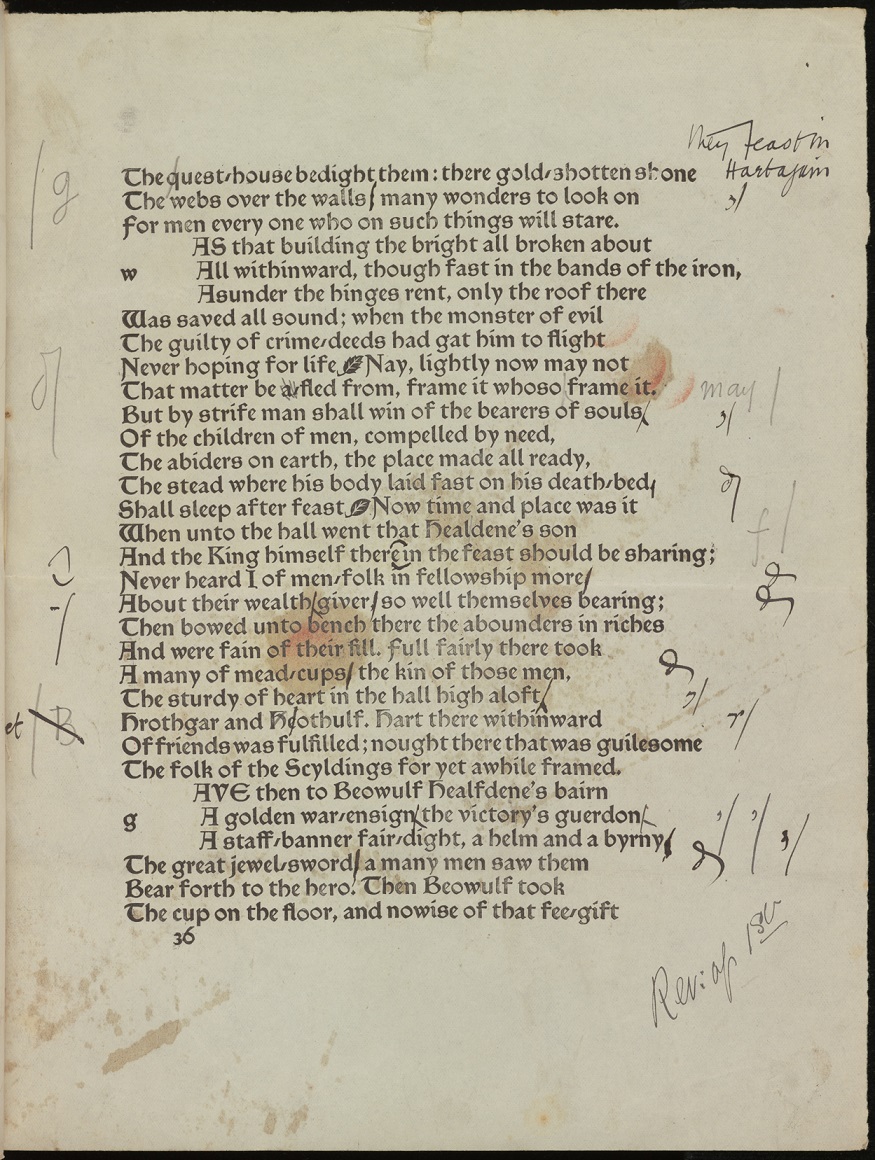 They feast in
Hart again
The quest-house bedight them: there gold-shotten shone
The webs over the walls, many wonders to look on
For men every one who on such things will stare.
AS that building the bright all broken about
w All withinward, though fast in the bands of the iron,
Asunder the hinges rent, only the roof there
Was saved all sound; when the monster of evil
The guilty of crime-deeds had gat him to flight
Never hoping for life. Nay, lightly now may not
That matter be fled from, frame it whoso frame it.
may
But by strife man shall win of the bearers of souls,
Of the children of men, compelled by need,
The abiders on earth, the place made all ready,
The stead where his body laid fast on his death-bed,
Shall sleep after feast. Now time and place was it
When unto the hall went that Healdene's son
f
And the King himself therein the feast should be sharing;
Never heard I of men-folk in fellowship more,
About their wealth giver, so well themselves bearing;
Then bowed unto bench there the abounders in riches
And were fain of their fill. Full fairly there took
A many of mead-cups, the kin of those men,
The sturdy of heart in the hall high aloft,
Hrothgar and Hrothulf. Hart there withinward
Of friends was fulfilled; nought there that was guilesome
The folk of the Scyldings for yet awhile framed.
AVE then to Beowulf Healfdene's bairn
g A golden war-ensign, the victory's guerdon,
A staff-banner fair-dight, a helm and a byrny,
The great jewel-sword, a many men saw them
Bear forth to the hero. Then Beowulf took
The cup on the floor, and nowise of that fee-gift
36